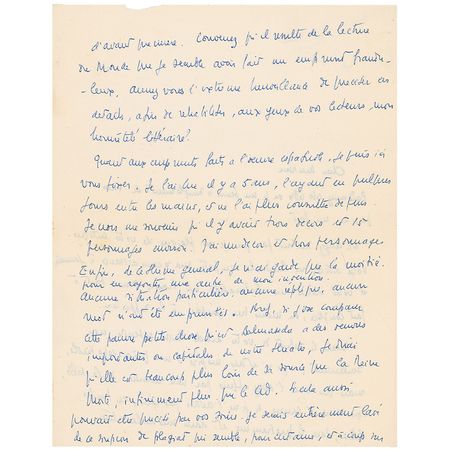 d'avant première. Convenez qu'il résulte de la lecture
du Monde que je semble avoir fait un emprunt fraudu-
leux. Aurez-vous l'extrême bienveillance de préciser ces
détails, afin de réhabiliter, aux yeux de vos lecteurs, mon
honnêteté littéraire?
Quant aux emprunts faits à l'œuvre espagnole, je puis ici
vous fixer. Je l'ai lue, il y a 5 ans, l'ayant eu quelques
jours entre les mains, et ne l'ai plus consultée depuis.
Je crois me souvenir qu'il y avait trois décors et 10
personnages environ. J'ai un décor et trois personnages.
Enfin, le thème général, je n'ai gardé que la moitié
pour en rajouter une autre de mon invention.
Aucune situation particulière, aucune réplique, aucun
mot n'ont été empruntés. Bref, si j'ose comparer
cette pauvre petite chose qu'est à des œuvres
importantes ou capitales de notre théâtre, je dirai
qu'elle est beaucoup plus loin de sa source que La Reine
Morte, infiniment plus que le Cid. Si cela aussi
pouvait être précisé par vos soins, je serais entièrement lavé
de ce soupçon de plagiat qui semble, pour certains, et à coup sûr